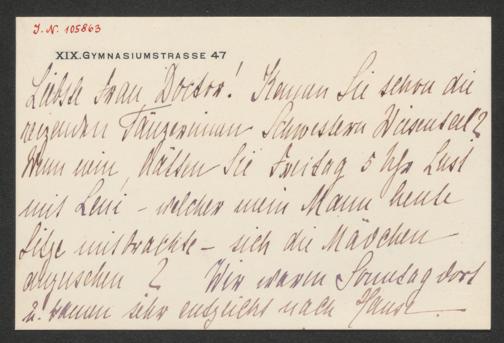 J. N. 105863
XIX. GYMNASIUMSTRASSE 47
Liebste Frau Doctor! Kennen Sie schon die
reizenden Tänzerinnen Schwestern Wiesenthal?
Wenn nein, hätten Sie Freitag 5 Uhr Lust
mit Leni – welcher mein Mann heute
Sitze mitbrachte – sich die Mädchen
anzusehen? Wir waren Sonntag dort
u. kamen sehr entzückt nach Hause.